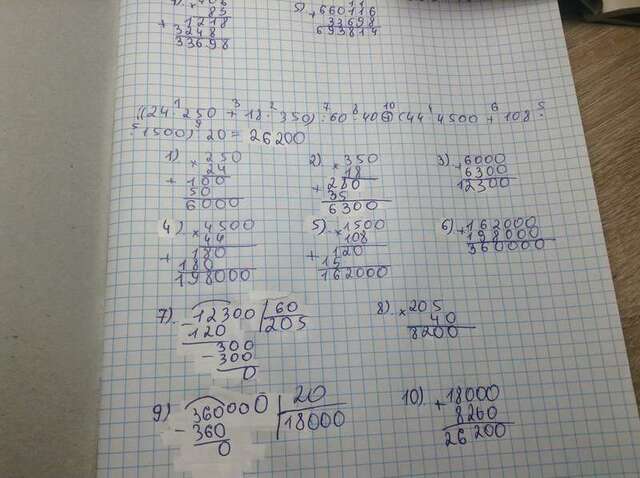 85
1218
3248
33698
5) +660116
33698
693814
((24·250+18·350):60·40+(44·4500+108·
·1500):20=26200
1) ×250
24
+100
50
6000
2) ×350
18
+280
35
6300
3) +6000
6300
12300
4) ×4500
44
+180
180
198000
5) ×1500
108
+120
15
162000
6) +162000
198000
360000
7) -12300 | 60
120 | 205
300
-300
0
8) ×205
40
8200
9) -360000 | 20
360 | 18000
0
10) +18000
8200
26200